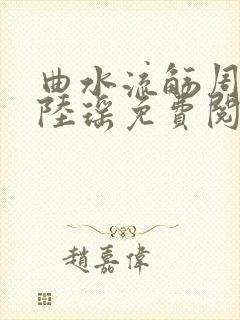 曲水流觞周
陸瑶免費閱
趙嘉偉